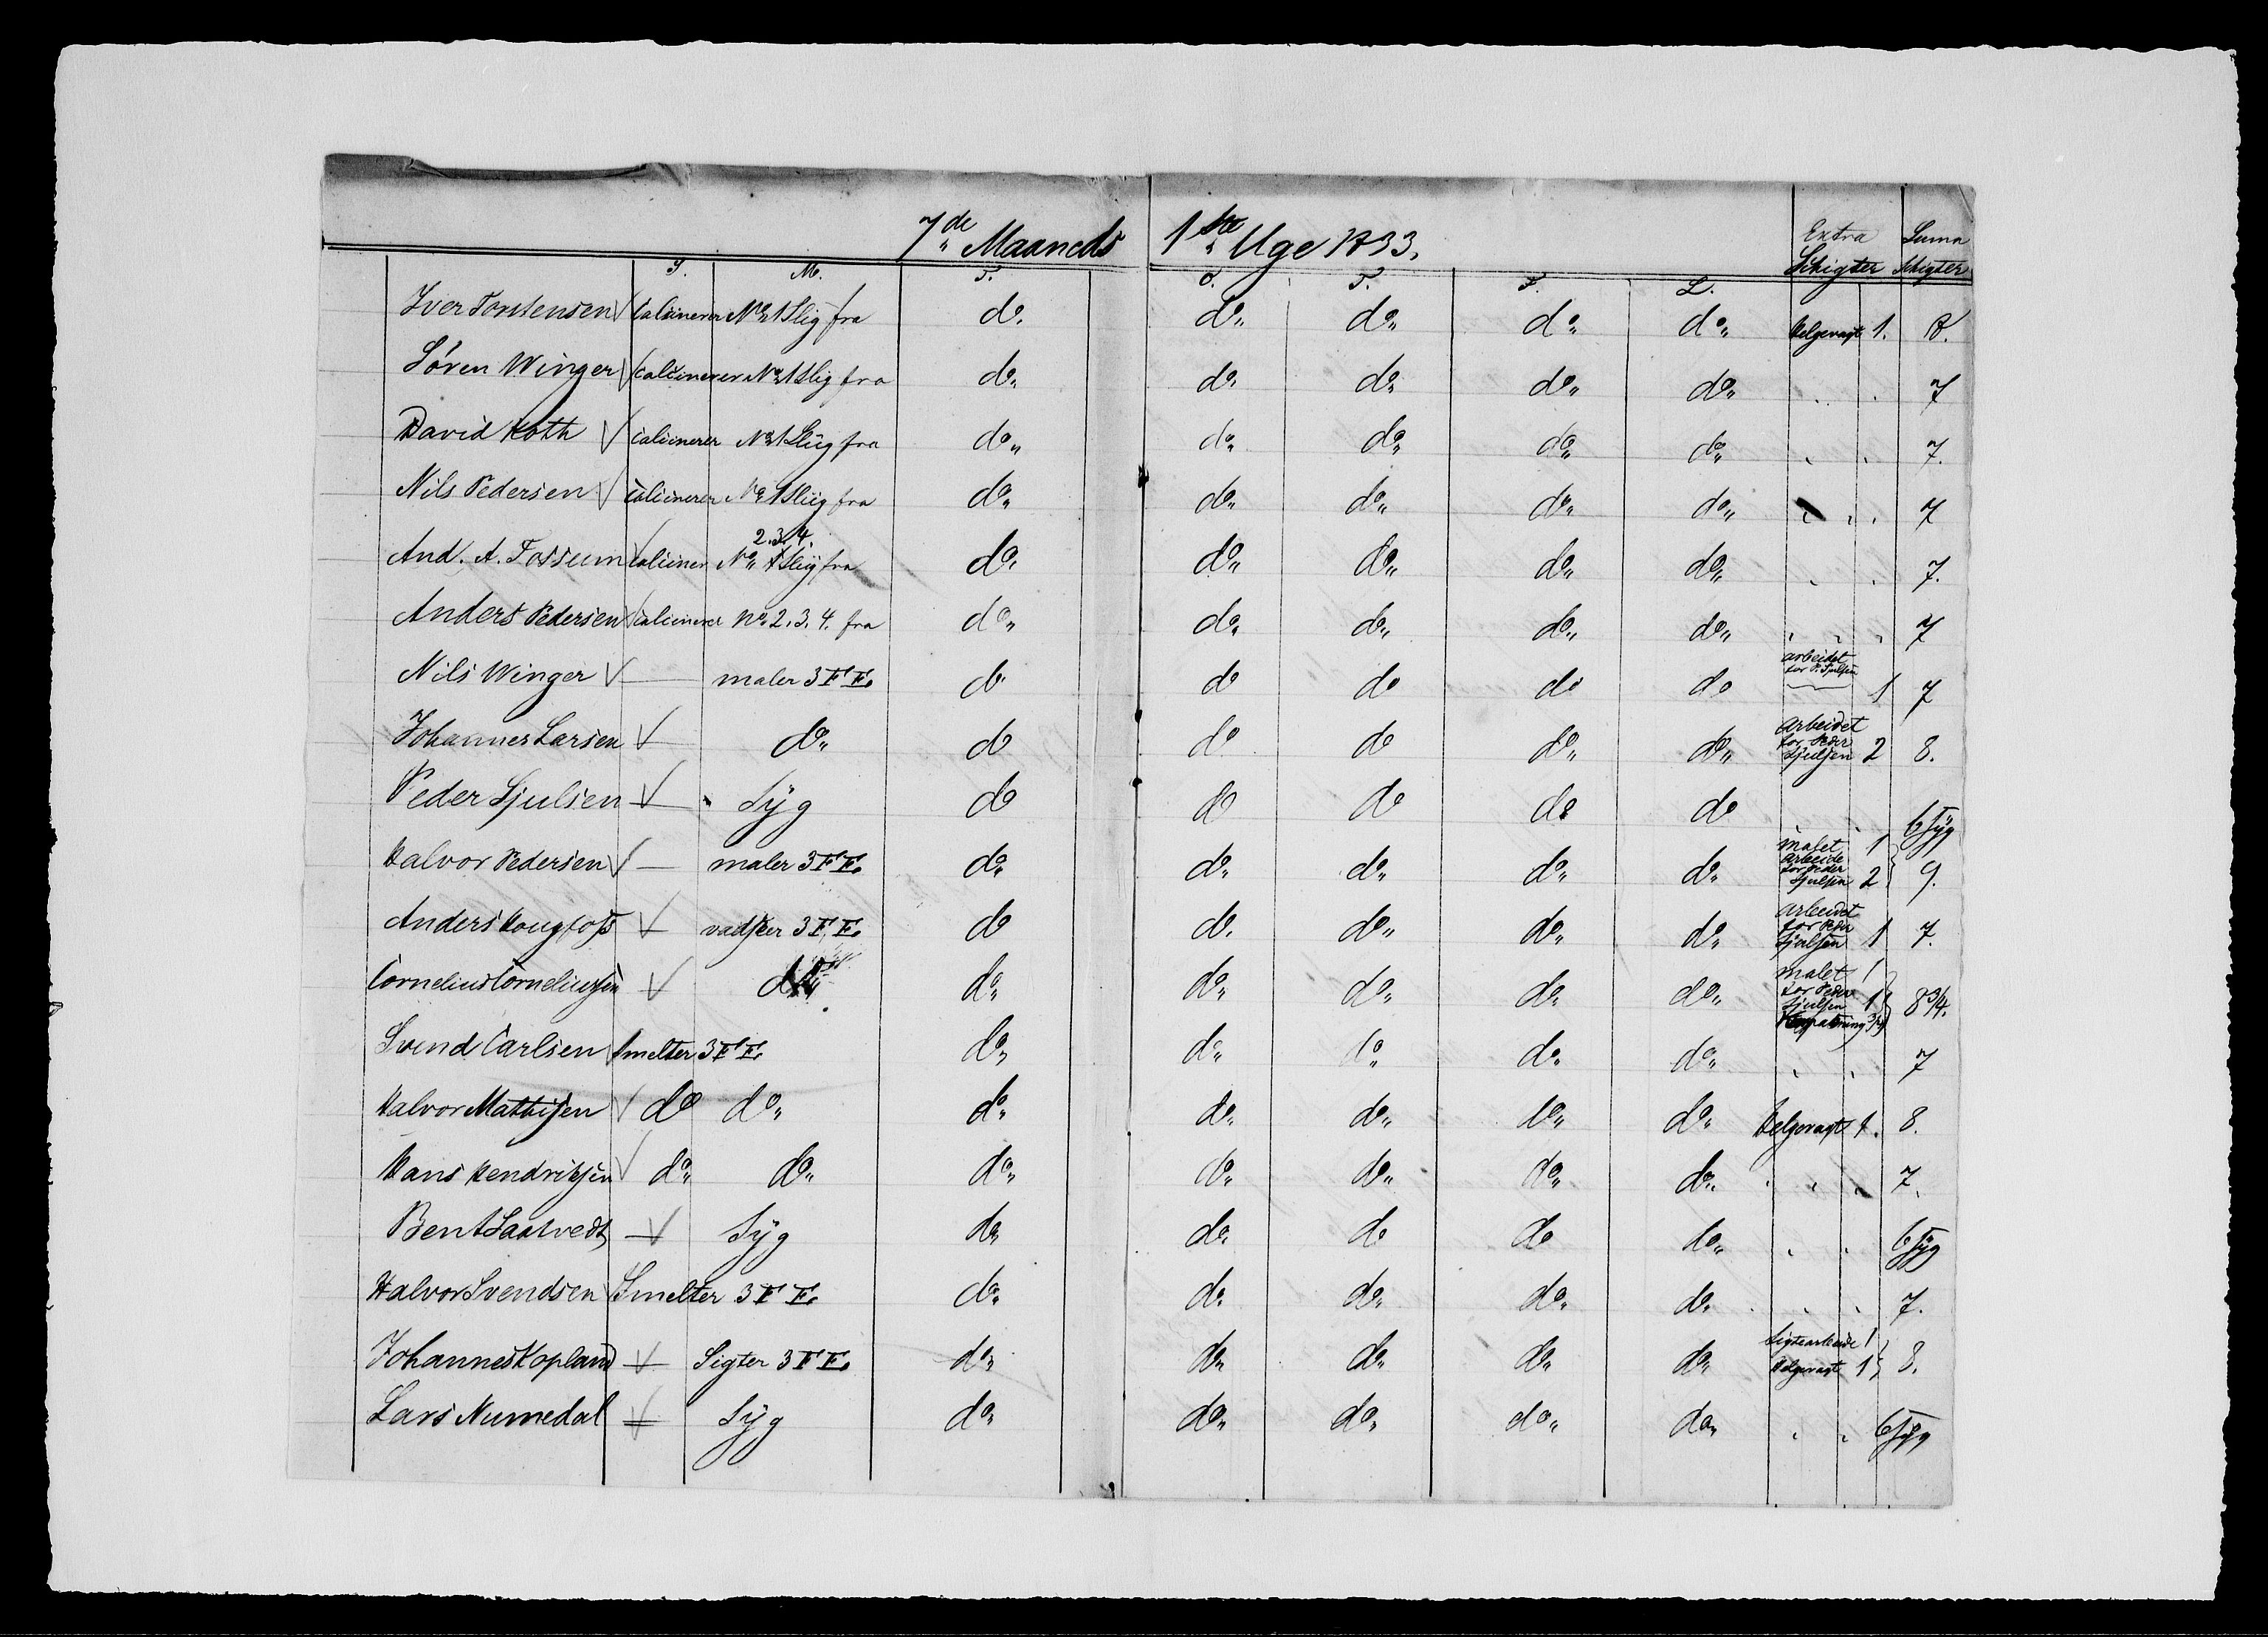 7de Maaneds 1ste Uge 1833. Extra Schigter Suma Schigter
S. M. T. O. T. F. L.
Iver Torstensen √ Calcinerer No 1 Slig fra do. do„ do„ do„ do„ Helgevagt 1. 8.
Søren Winger √ Calcinerer No 1 Slig fra do„ do„ do„ do„ do„ „ „ 7
David Koth √ Calcinerer No 1 Slig fra do„ do„ do„ do„ do„ „ „ 7.
Nils Pedersen √ Calcinerer No 1 Slig fra do„ do„ do„ do„ do„ „ „ 7
2.3.4.
And. A. Fossum √ Calciner No 1 Slig fra do„ do„ do„ do„ do„ „ „ 7.
Anders Pedersen √ Calcinerer No. 2. 3. 4. fra do„ do„ do„ do„ do„ „ „ 7
Nils Winger √ — maler 3 F E. do do do do do arbeidet for P. Sjulsen 1 7
Johannes Larsen √ — do„ do do do do„ do„ arbeidet for Peder Sjulsen 2 8.
Peder Sjulsen √ — Syg do do do do do „ „ 6 syg
Halvor Pedersen √ — maler 3 F E. do„ do„ do„ do„ do„ malet 1 arbeide for Peder Sjulsen 2 9.
Anders Hougfoss √ — vadsker 3 F E. do do. do„ do„ do„ arbeidet for Peder Sjulsen 1 7.
Cornelius Corneliussen √ — do„ do„ do„ do„ do„ do„ malet 1 for Peder Sjulsen 1 Reparering 3/4 8 3/4.
Svend Carlsen √ smelter 3 F E. do„ do„ do do„ do„ „ „ 7
Halvor Mathisen √ do do„ do„ do„ do„ do„ do„ helgevagt 1. 8.
Hans Hendriksen √ do„ do„ do„ do„ do„ do„ do„ „ „ 7.
Bent Saatvedt √ — Syg do„ do„ do do do„ „ „ 6 syg
Halvor Svendsen √ Smelter 3 F E. do„ do„ do„ do„ do„ „ „ 7.
Johannes Kopland √ — Sigter 3 F E. do„ do„ do„ do„ do„ Sigtearbeide 1 Helgevagt 1 8.
Lars Numedal √ — Syg do„ do„ do„ do„ do„ „ „ 6 syg